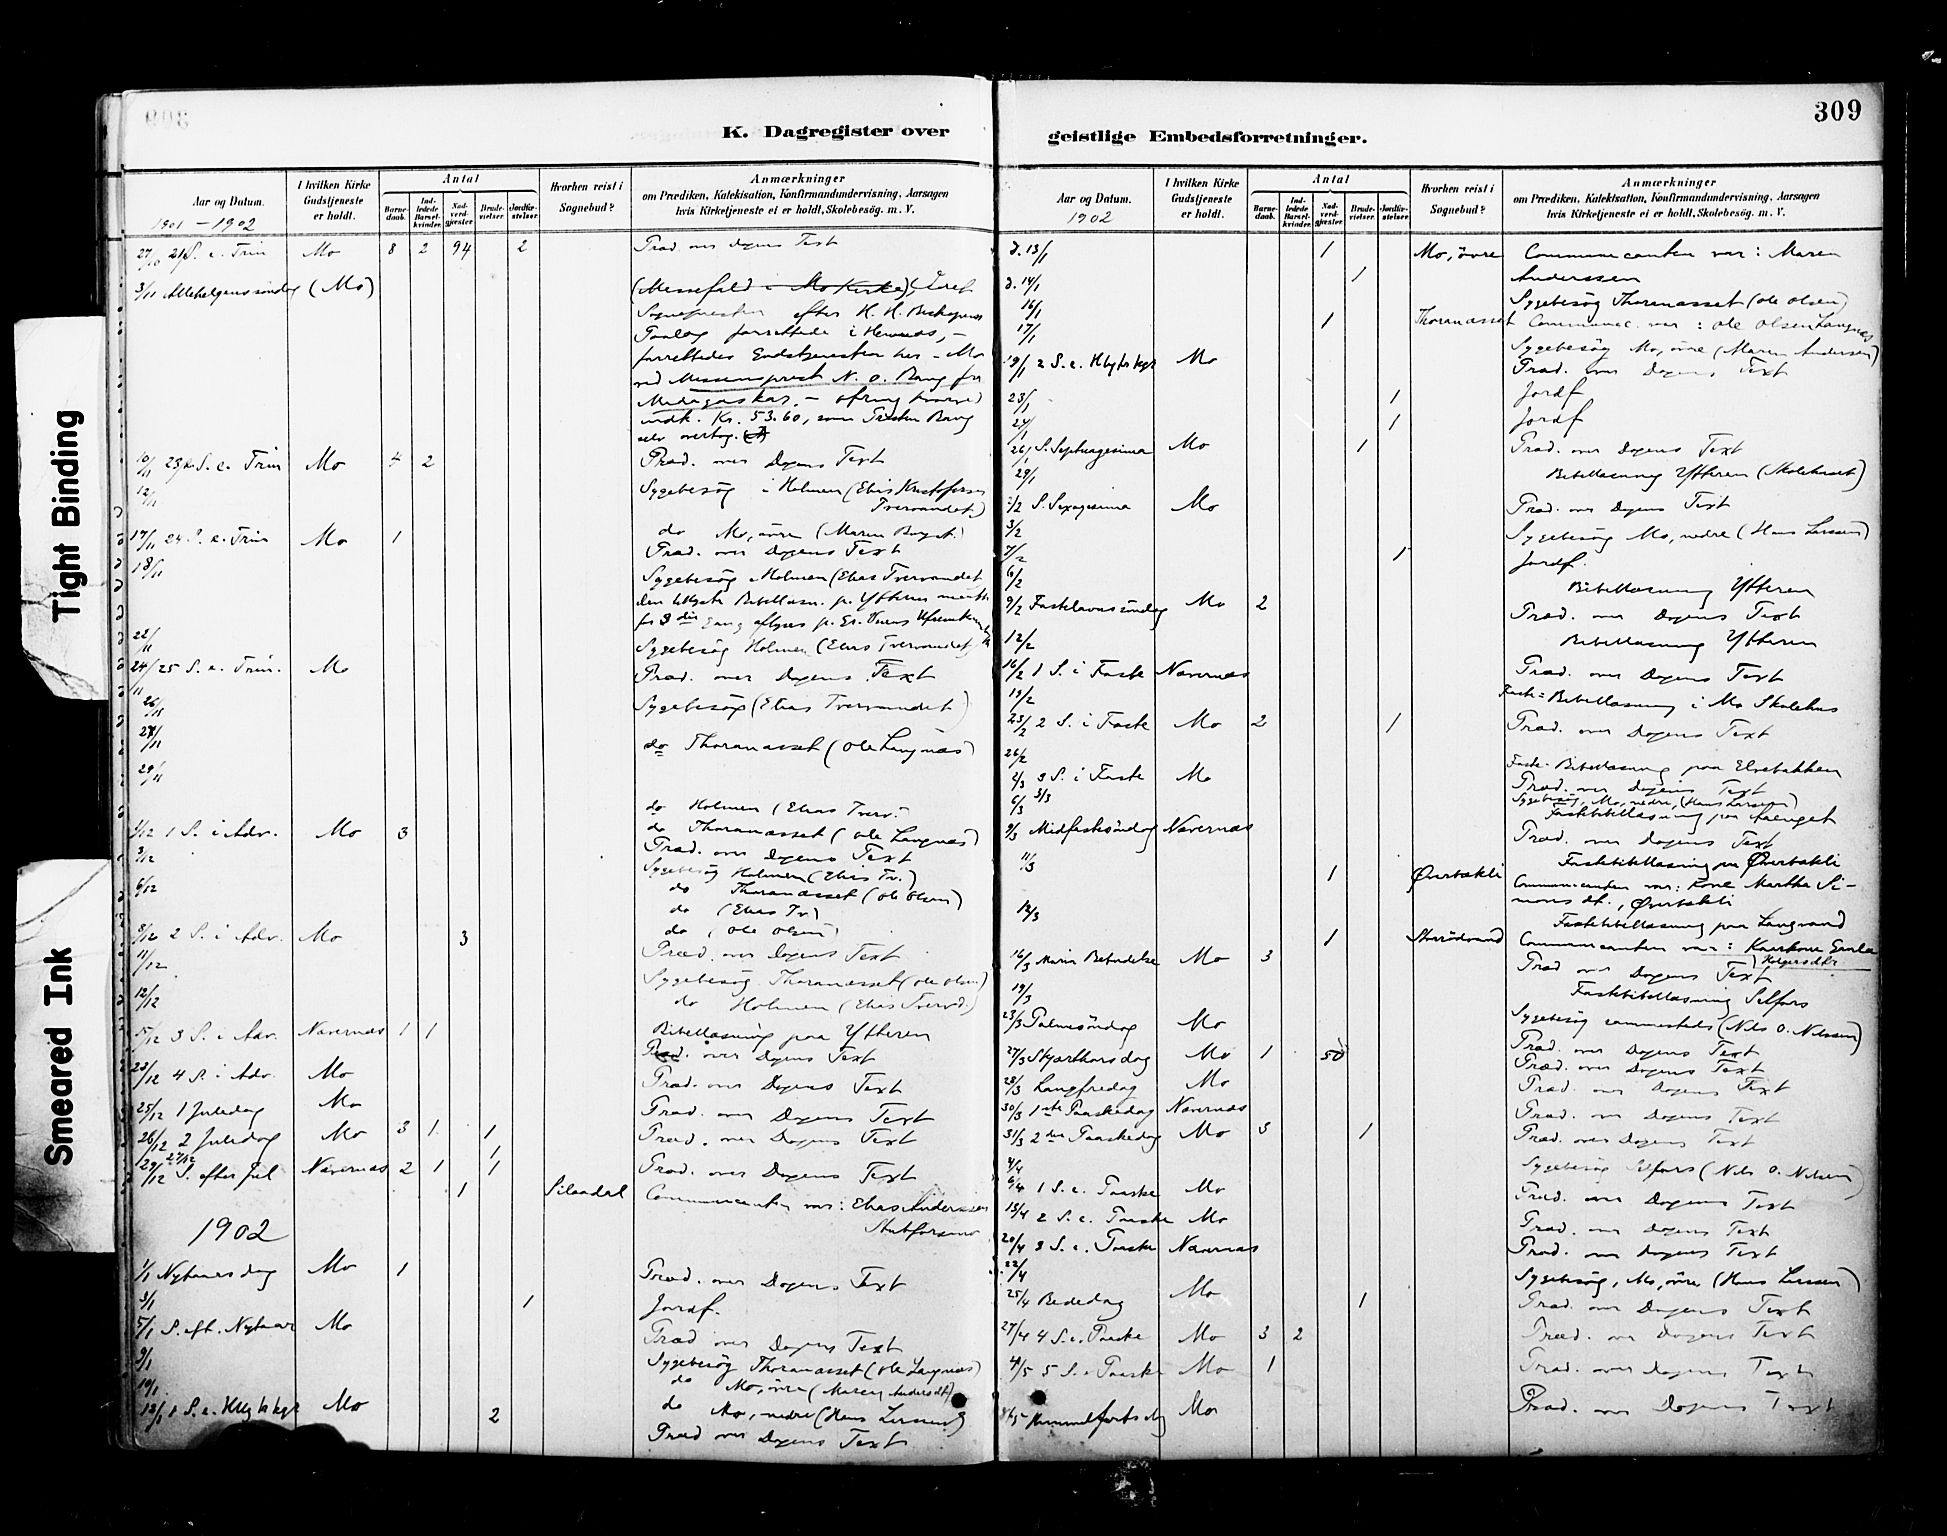 309
K. Dagregister over
Aar og Datum.
1901 – 1902
I hvilken Kirke Gudstjeneste er holdt.
Antal
Barnedaab.
Indledede Barselkvinder.
Nadverdgjester.
Brudevielser.
Jordfæstelser.
Hvorhen reist i Sognebud?
Anmærkninger
om Prædiken, Katekisation, Konfirmandundervisning, Aarsagen
hvis Kirketjeneste ei er holdt, Skolebesøg. m. V.
27/10 21 S. e. Trin Mo 8 2 94 2 Præd. over Dagens Text
3/11 Allehelgenssøndag (Mo) (Messefald i Mo Kirke),
forrettedes Gudstjenesten her – Mo
ved Missionsprest N. O. Bang fra
Madagaskar, – ofring
indk. Kr. 53.60, som Presten Bang
selv overtog.
10/11 23 S. e. Trin Mo 4 2 Præd. over Dagens Text
12/11 Sygebesøg i Holmen (Elias
Trervandet.)
do Mo, øvre
17/11 24 S. e. Trin Mo 1 Præd. over Dagens Text
18/11 Sygebesøg Holmen (Elias Trervandet
22/11 Sygebesøg Holmen (Elias Trervandet)
24/11 25 S. e. Trin. Mo Præd. over Dagens Text
26/11 Sygebesøg (Elias Trervandet)
27/11 do Thoranæsset (Ole Langnæs)
29/11
do Holmen (Elias Trerv.
do Thoranæsset (Ole Langnæs)
1/12 1 S. i Adv. Mo 3 Præd. over Dagens Text
3/12 Sygebesøg Holmen (Elias Tr.)
do Thoranæsset (Ole Olsen)
6/12 do (Elias Tr)
do (Ole Olsen)
8/12 2 S. i Adv. Mo 3 Præd. over Dagens Text
11/12 Sygebesøg. Thoranæsset (Ole Olsen)
do Holmen (Elias Trervd.)
12/12 Bibellæsning paa Ytteren
15/12 3 S. i Adv. Nævernæs 1 1 Præd. over Dagens Text
22/12 4 S. i Adv. Mo Præd. over Dagens Text
25/12 1 Juledag Mo Præd. over Dagens Text
26/12 2 Juledag Mo 3 1 1 Præd. over Dagens Text
27/12 1
29/12 S. efter Jul Nævernæs 2 1 1 Præd. over Dagens Text
1 Communicanten var: Elias Anderssen
1902
1/1 Nytaarsdag Mo 1 Præd. over Dagens Text
3/1 1 Jordf.
5/1 S. eft. Nytaar Mo Præd over Dagens Text
9/1 Sygebesøg Thoranæsset (Ole Langnæs)
10/1 do Mo, øvre (Maren Andersdtr)
do Mo, nedre (Hans Larssen)
12/1 1 S. e. H3kgr Mo 2 Præd over Dagens Text
309
geistlige Embedsforretninger.
Aar og Datum.
1902
I hvilken Kirke Gudstjeneste er holdt.
Antal
Barnedaab.
Indledede Barselkvinder.
Nadverdgjester.
Brudevielser.
Jordfæstelser.
Hvorhen reist i Sognebud?
Anmærkninger
om Prædiken, Katekisation, Konfirmandundervisning, Aarsagen
hvis Kirketjeneste ei er holdt, Skolebesøg. m. V.
d. 13/1 1 Mo, øvre Communicanten var: Maren
Anderssen
d. 14/1 1
16/1 Sygebesøg Thoranæsset (Ole Olsen)
17/1 1 Thoranæsset Communic. var: Ole Olsen Langnæs
Sygebesøg Mo, øvre (Maren Andersen)
19/1 2 S. e. Mo Præd. over Dagens Text
23/1 1 Jordf
24/1 1 Jordf
26/1 S. Septuagesima Mo 1 Præd. over Dagens Text
29/1 Bibellæsning Ytteren (Skolehuset)
2/2 S. Sexagesima Mo Præd. over Dagens Text
3/2 Sygebesøg Mo, nedre (Hans Larssen)
7/2 1 Jordf.
6/2 Bibellæsning Ytteren
9/2 Fastelavnssøndag Mo 2 Præd. over Dagens Text
12/2 Bibellæsning Ytteren
16/2 1 S. i Faste Nævernæs Præd. over Dagens Text
19/2 Faste-Bibellæsning i Mo Skolehus
23/2 2 S. i Faste Mo 2 1 Præd. over Dagens Text
26/2 Faste-Bibellæsning paa Elvebakken
2/3 3 S. i Faste Mo Præd. over Dagens Text
3/3 Sygebesøg, Mo, nedre, (Hans Larssen)
6/3 Fastebibellæsning paa
9/3 Midfastesøndag Nævernæs Præd. over Dagens Text
11/3 Fastebibellæsning paa
1 Communicanten var: Kone Martha Si-
mons dt.,
12/3 Fastebibellæsning paa Langvand
1 Communicanten var:
16/3 Mariæ Bebudelse Mo 3 Præd over Dagens Text
19/3 Fastebibellæsning Selfors
Sygebesøg sammesteds (Nils O. Nilssen)
23/3 Palmesøndag Mo Præd. over Dagens Text
27/3 Skjærthorsdag Mo 1 50 Præd. over Dagens Text
28/3 Langfredag Mo Præd. over Dagens Text
30/3 1ste Paaskedag Nævernæs Præd. over Dagens Text
31/3 2den Paaskedag Mo 3 1 Præd. over Dagens Text
4/4 Sygebesøg Selfors (Nils O. Nilssen)
6/4 1 S. e. Paaske Mo Præd. over Dagens Text
13/4 2 S. e. Paaske Mo Præd. over Dagens Text
20/4 3 S. e. Paaske Nævernæs Præd. over Dagens Text
22/4 Sygebesøg, Mo, øvre (Hans Larssen)
25/4 Bededag Mo 1 Præd. over Dagens Text
27/4 4 S. e. Paaske Mo 3 2 Præd. over Dagens Text
4/5 5 S. e. Paaske Mo 1 Præd. over Dagens Text
8/5 Himmelfartsdag Mo Præd. over Dagens Text
Tight Binding
Smeared Ink